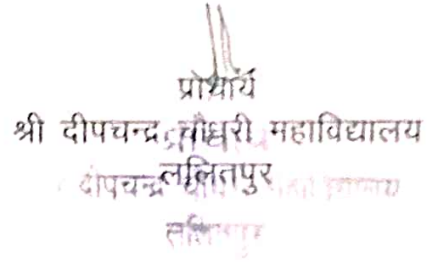 प्राचार्य
श्री दीपचन्द्र चौधरी महाविद्यालय
ललितपुर
दीपचन्द्र
ललितपुर